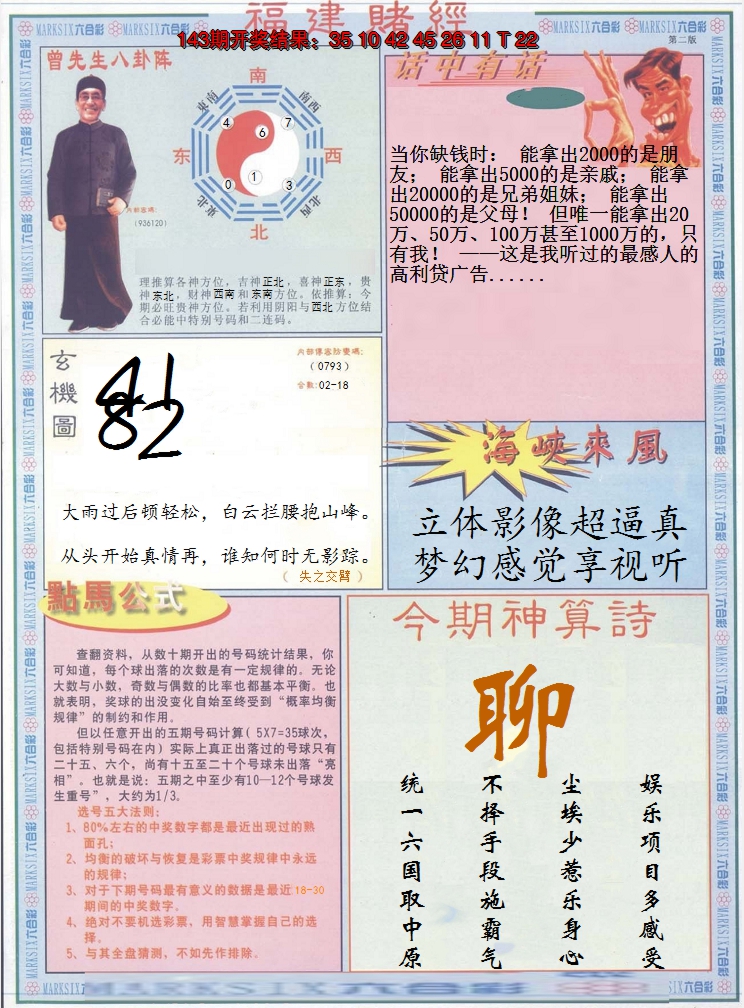 福建賭經
143期开奖结果：35 10 42 45 26 11 T 22
MARKSIX六合彩
第二版
曾先生八卦阵
南
东南
西南
东
西
4
6
7
0
1
3
东北
西北
北
内部密碼：
(936120)
理推算各神方位，吉神正北，喜神正东，贵
神东北，财神西南和东南方位。依推算：今
期必旺贵神方位。若利用阴阳与西北方位结
合必能中特别号码和二连码。
话中有话
当你缺钱时： 能拿出2000的是朋
友； 能拿出5000的是亲戚； 能拿
出20000的是兄弟姐妹； 能拿出
50000的是父母！ 但唯一能拿出20
万、50万、100万甚至1000万的，只
有我！ ——这是我听过的最感人的
高利贷广告......
玄機圖
内部傳密防雙碼：
(0793)
合數：02-18
41
82
大雨过后顿轻松，白云拦腰抱山峰。
从头开始真情再，谁知何时无影踪。
（ 失之交臂 ）
海峽來風
立体影像超逼真
梦幻感觉享视听
點馬公式
查翻资料，从数十期开出的号码统计结果，你
可知道，每个球出落的次数是有一定规律的。无论
大数与小数，奇数与偶数的比率也都基本平衡。也
就表明，奖球的出没变化自始至终受到“概率均衡
规律”的制约和作用。
但以任意开出的五期号码计算( 5X7=35球次，
包括特别号码在内) 实际上真正出落过的号球只有
二十五、六个，尚有十五至二十个号球未出落“亮
相”。也就是说：五期之中至少有10—12个号球发
生重号”，大约为1/3。
选号五大法则：
1、80%左右的中奖数字都是最近出现过的熟
面孔；
2、均衡的破坏与恢复是彩票中奖规律中永远
的规律；
3、对于下期号码最有意义的数据是最近18-30
期间的中奖数字。
4、绝对不要机选彩票，用智慧掌握自己的选
择。
5、与其全盘猜测，不如先作排除。
今期神算詩
聊
娱乐项目多感受
尘埃少惹乐身心
不择手段施霸气
统一六国取中原